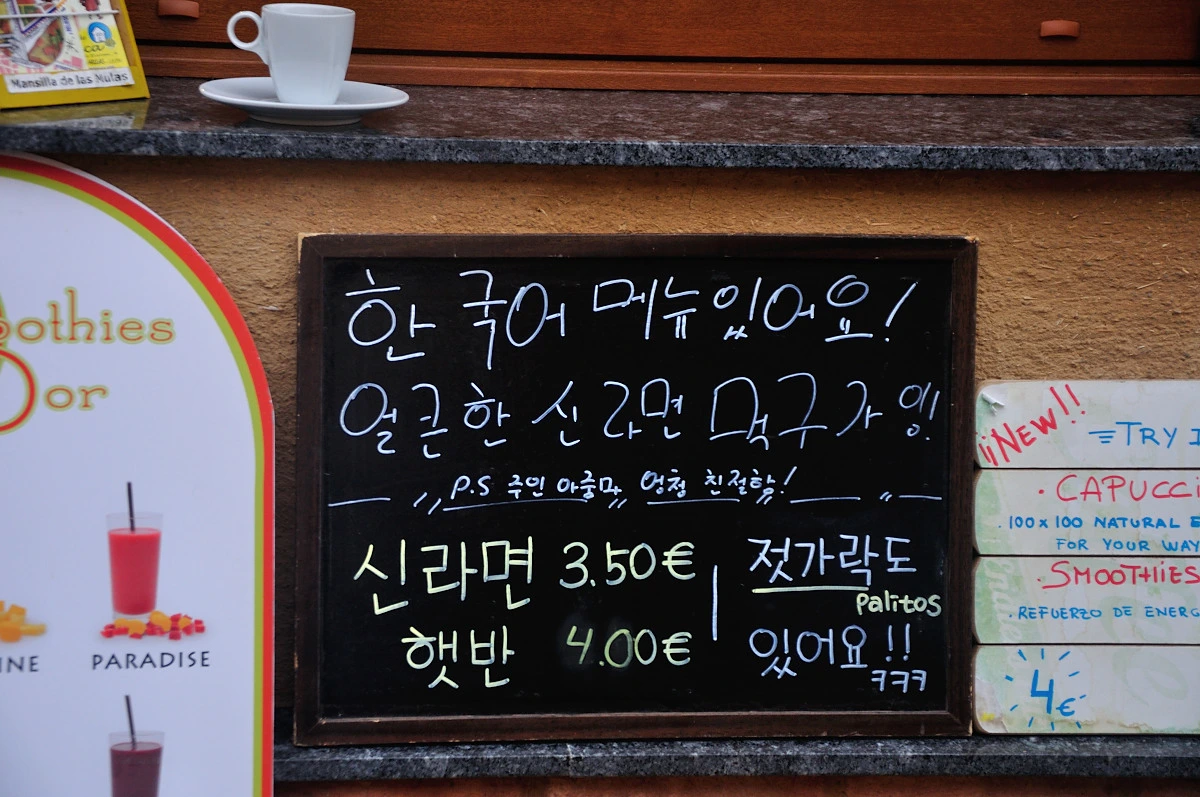 Mansilla de las Mulas
한국어 메뉴 있어요!
얼큰한 신라면 맥주가 있!
P.S 주인 아줌마 엄청 친절함!
신라면 3.50€
햇반 4.00€
젓가락도
Palitos
있어요!!
ㅋㅋㅋ
oothies
or
INE
PARADISE
¡¡NEW!!
TRY
· CAPUCCI
· 100 x 100 NATURAL E
FOR YOUR WAY
· SMOOTHIES
· REFUERZO DE ENERG
4€